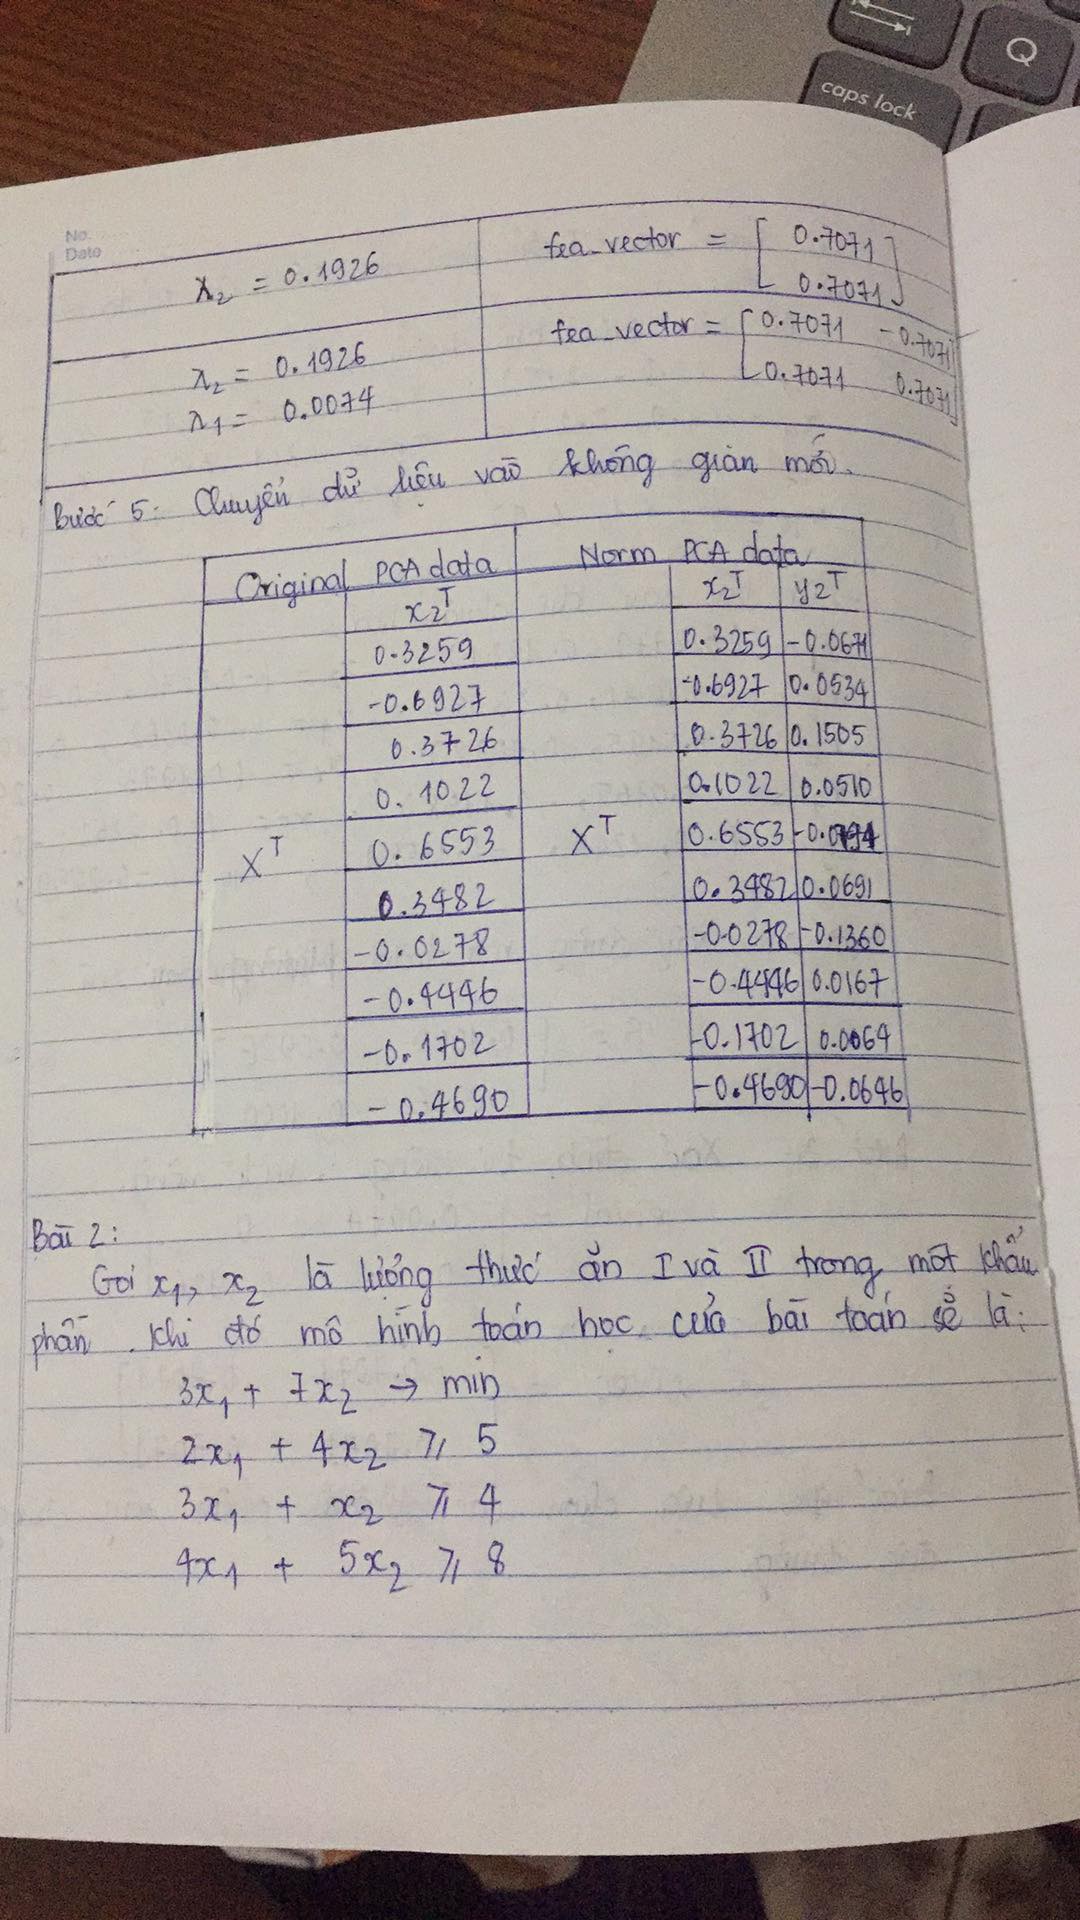 Q
caps lock
No.
Date
λ₂ = 0.1926
fea_vector = [0.7071
0.7071]
λ₂ = 0.1926
λ₁ = 0.0074
fea_vector = [0.7071 -0.7071
0.7071 0.7071]
Bước 5: Chuyển dữ liệu vào không gian mới.
Original PCA data Norm PCA data
x₂ᵀ x₂ᵀ y₂ᵀ
0.3259 0.3259 -0.0671
-0.6927 -0.6927 0.0534
0.3726 0.3726 0.1505
0.1022 0.1022 0.0510
Xᵀ 0.6553 Xᵀ 0.6553
0.3482 0.3482 0.0691
-0.0278 -0.0278 -0.1360
-0.4446 -0.4446 0.0167
-0.1702 -0.1702 0.0064
-0.4690 -0.4690 -0.0646
Bài 2:
Gọi x₁, x₂ là lượng thức ăn I và II trong một khẩu
phần. Khi đó mô hình toán học của bài toán sẽ là:
3x₁ + 7x₂ → min
2x₁ + 4x₂ ≥ 5
3x₁ + x₂ ≥ 4
4x₁ + 5x₂ ≥ 8